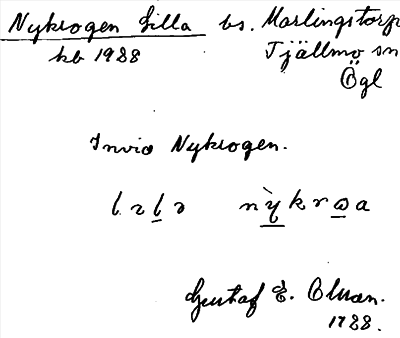 Nykrogen Lilla bs. Marlingstorp
kb 1988 Tjällmo sn
Ögl
Invid Nykrogen.
Gustaf E.
1988.